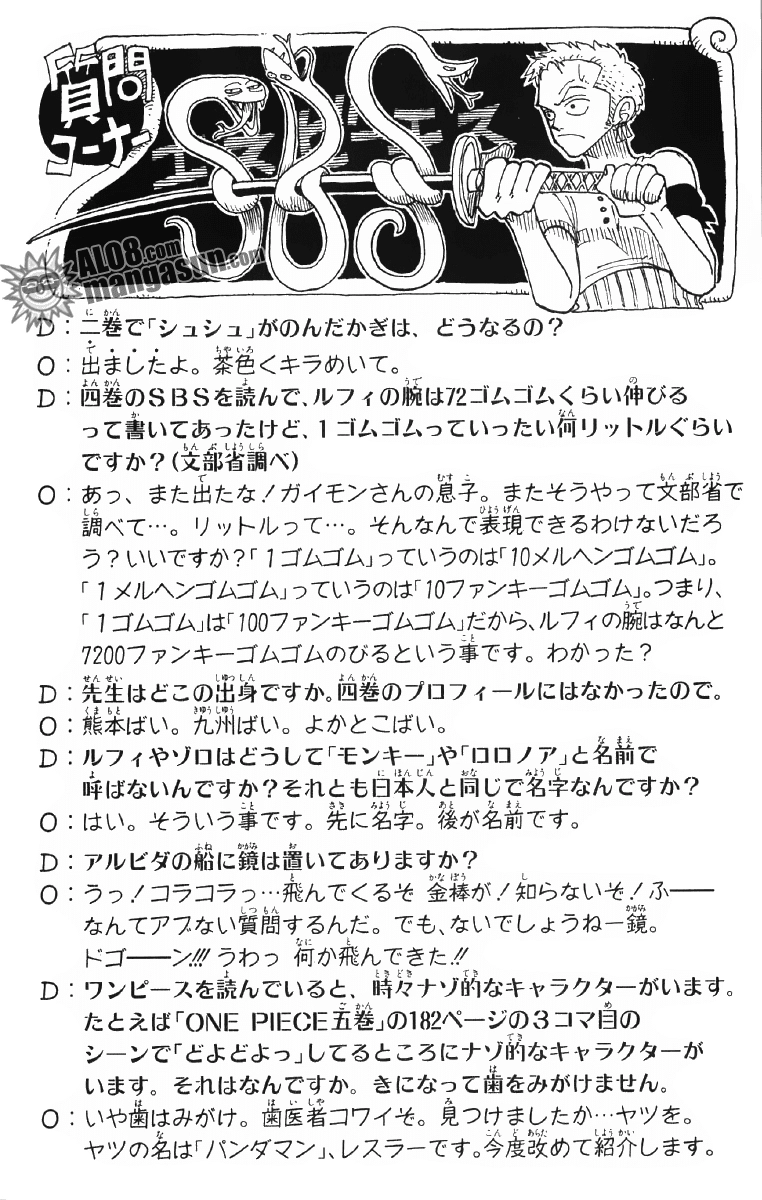 質問
コーナー
エスビーエス
SBS
AL08.com
mangasun.com
D：二巻で「シュシュ」がのんだかぎは、どうなるの？
O：出ましたよ。茶色くキラめいて。
D：四巻のSBSを読んで、ルフィの腕は72ゴムゴムくらい伸びる
って書いてあったけど、1ゴムゴムっていったい何リットルぐらい
ですか？(文部省調べ)
O：あっ、また出たな！ガイモンさんの息子。またそうやって文部省で
調べて…。リットルって…。そんなんで表現できるわけないだろ
う？いいですか？「1ゴムゴム」っていうのは「10メルヘンゴムゴム」。
「1メルヘンゴムゴム」っていうのは「10ファンキーゴムゴム」。つまり、
「1ゴムゴム」は「100ファンキーゴムゴム」だから、ルフィの腕はなんと
7200ファンキーゴムゴムのびるという事です。わかった？
D：先生はどこの出身ですか。四巻のプロフィールにはなかったので。
O：熊本ばい。九州ばい。よかとこばい。
D：ルフィやゾロはどうして「モンキー」や「ロロノア」と名前で
呼ばないんですか？それとも日本人と同じで名字なんですか？
O：はい。そういう事です。先に名字。後が名前です。
D：アルビダの船に鏡は置いてありますか？
O：うっ！コラコラっ…飛んでくるぞ 金棒が！知らないぞ！ふ――
なんてアブない質問するんだ。でも、ないでしょうね―鏡。
ドゴ――ン!!! うわっ 何か飛んできた!!
D：ワンピースを読んでいると、時々ナゾ的なキャラクターがいます。
たとえば「ONE PIECE五巻」の182ページの3コマ目の
シーンで「どよどよっ」してるところにナゾ的なキャラクターが
います。それはなんですか。きになって歯をみがけません。
O：いや歯はみがけ。歯医者コワイぞ。見つけましたか…ヤツを。
ヤツの名は「パンダマン」、レスラーです。今度改めて紹介します。